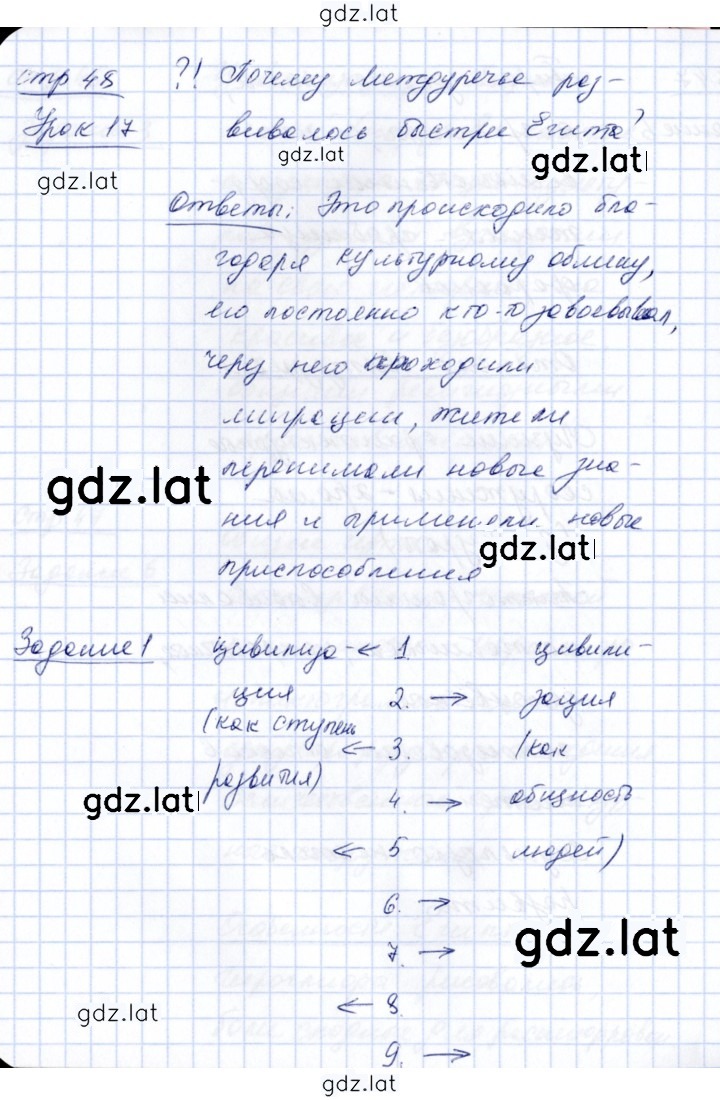 gdz.lat
стр 48 ?! Почему Междуречье раз-
Урок 17 вивалось быстрее Египта?
gdz.lat gdz.lat
gdz.lat
Ответы: Это происходило бла-
годаря культурному облику,
его постоянно кто-то завоевывал,
через него проходили
миграции, жители
перенимали новые зна-
gdz.lat
ния и применяли новые
gdz.lat
приспособления
Задание 1 цивилиза- ← 1. цивили-
ция 2. → зация
(как ступень ← 3. (как
развития) 4. → общность
gdz.lat gdz.lat
← 5 людей)
6. →
7. → gdz.lat
gdz.lat ← 8.
9. →
gdz.lat